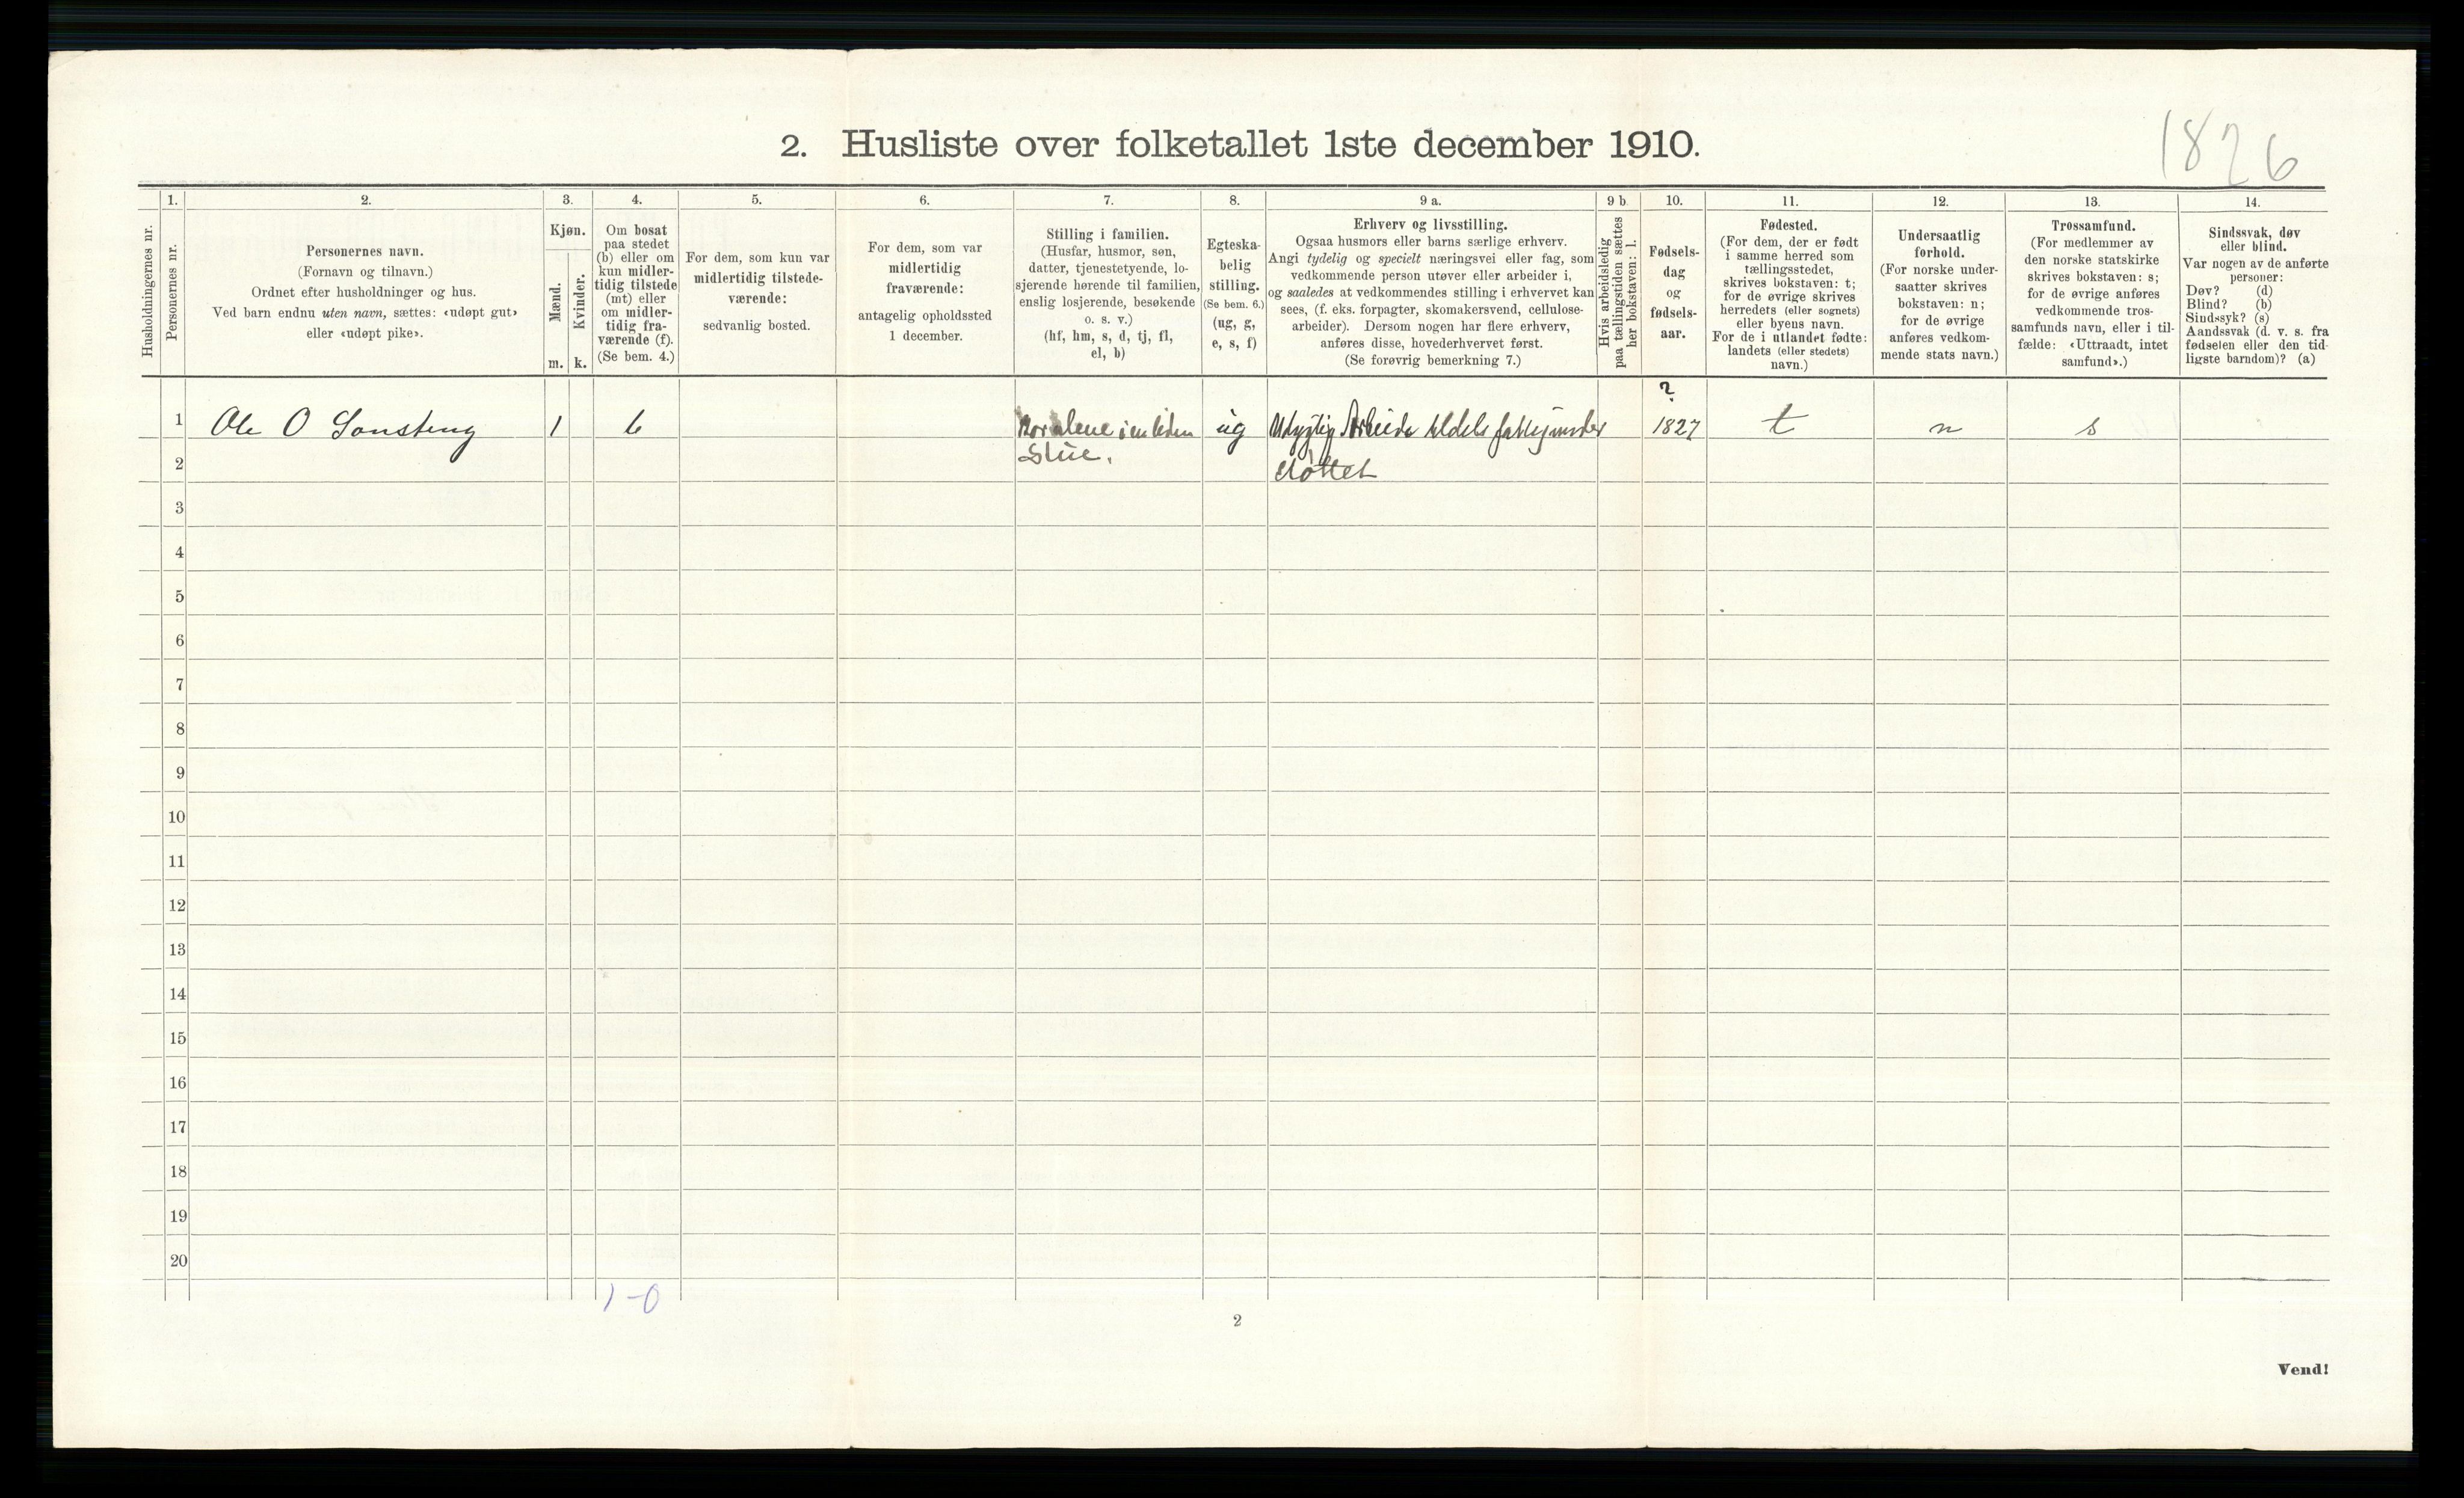 1826
2. Husliste over folketallet 1ste december 1910.
Husholdningernes nr.
1.
Personernes nr.
2.
Personernes navn.
(Fornavn og tilnavn.)
Ordnet efter husholdninger og hus.
Ved barn endnu uten navn, sættes: «udøpt gut»
eller «udøpt pike».
3.
Kjøn.
Mænd.
Kvinder.
m. k.
4.
Om bosat
paa stedet
(b) eller om
kun midler-
tidig tilstede
(mt) eller
om midler-
tidig fra-
værende (f).
(Se bem. 4.)
5.
For dem, som kun var
midlertidig tilstede-
værende:
sedvanlig bosted.
6.
For dem, som var
midlertidig
fraværende:
antagelig opholdssted
1 december.
7.
Stilling i familien.
(Husfar, husmor, søn,
datter, tjenestetyende, lo-
sjerende hørende til familien,
enslig losjerende, besøkende
o. s. v.)
(hf, hm, s, d, tj, fl,
el, b)
8.
Egteska-
belig
stilling.
(Se bem. 6.)
(ug, g,
e, s, f)
9 a.
Erhverv og livsstilling.
Ogsaa husmors eller barns særlige erhverv.
Angi tydelig og specielt næringsvei eller fag, som
vedkommende person utøver eller arbeider i,
og saaledes at vedkommendes stilling i erhvervet kan
sees, (f. eks. forpagter, skomakersvend, cellulose-
arbeider). Dersom nogen har flere erhverv,
anføres disse, hovederhvervet først.
(Se forøvrig bemerkning 7.)
9 b
Hvis arbeidsledig
paa tællingstiden sættes
her bokstaven: l.
10.
Fødsels-
dag
og
fødsels-
aar.
11.
Fødested.
(For dem, der er født
i samme herred som
tællingsstedet,
skrives bokstaven: t;
for de øvrige skrives
herredets (eller sognets)
eller byens navn.
For de i utlandet fødte:
landets (eller stedets)
navn.)
12.
Undersaatlig
forhold.
(For norske under-
saatter skrives
bokstaven: n;
for de øvrige
anføres vedkom-
mende stats navn.)
13.
Trossamfund.
(For medlemmer av
den norske statskirke
skrives bokstaven: s;
for de øvrige anføres
vedkommende tros-
samfunds navn, eller i til-
fælde: «Uttraadt, intet
samfund».)
14.
Sindssvak, døv
eller blind.
Var nogen av de anførte
personer:
Døv? (d)
Blind? (b)
Sindssyk? (s)
Aandssvak (d. v. s. fra
fødselen eller den tid-
ligste barndom)? (a)
?
1 Ole O Sonsteng 1 b Bor alene i en liden ug Udygtig Arbeide tildels 1827 t n s
2 Stue. støttet
3
4
5
6
7
8
9
10
11
12
13
14
15
16
17
18
19
20
1-0
2
Vend!